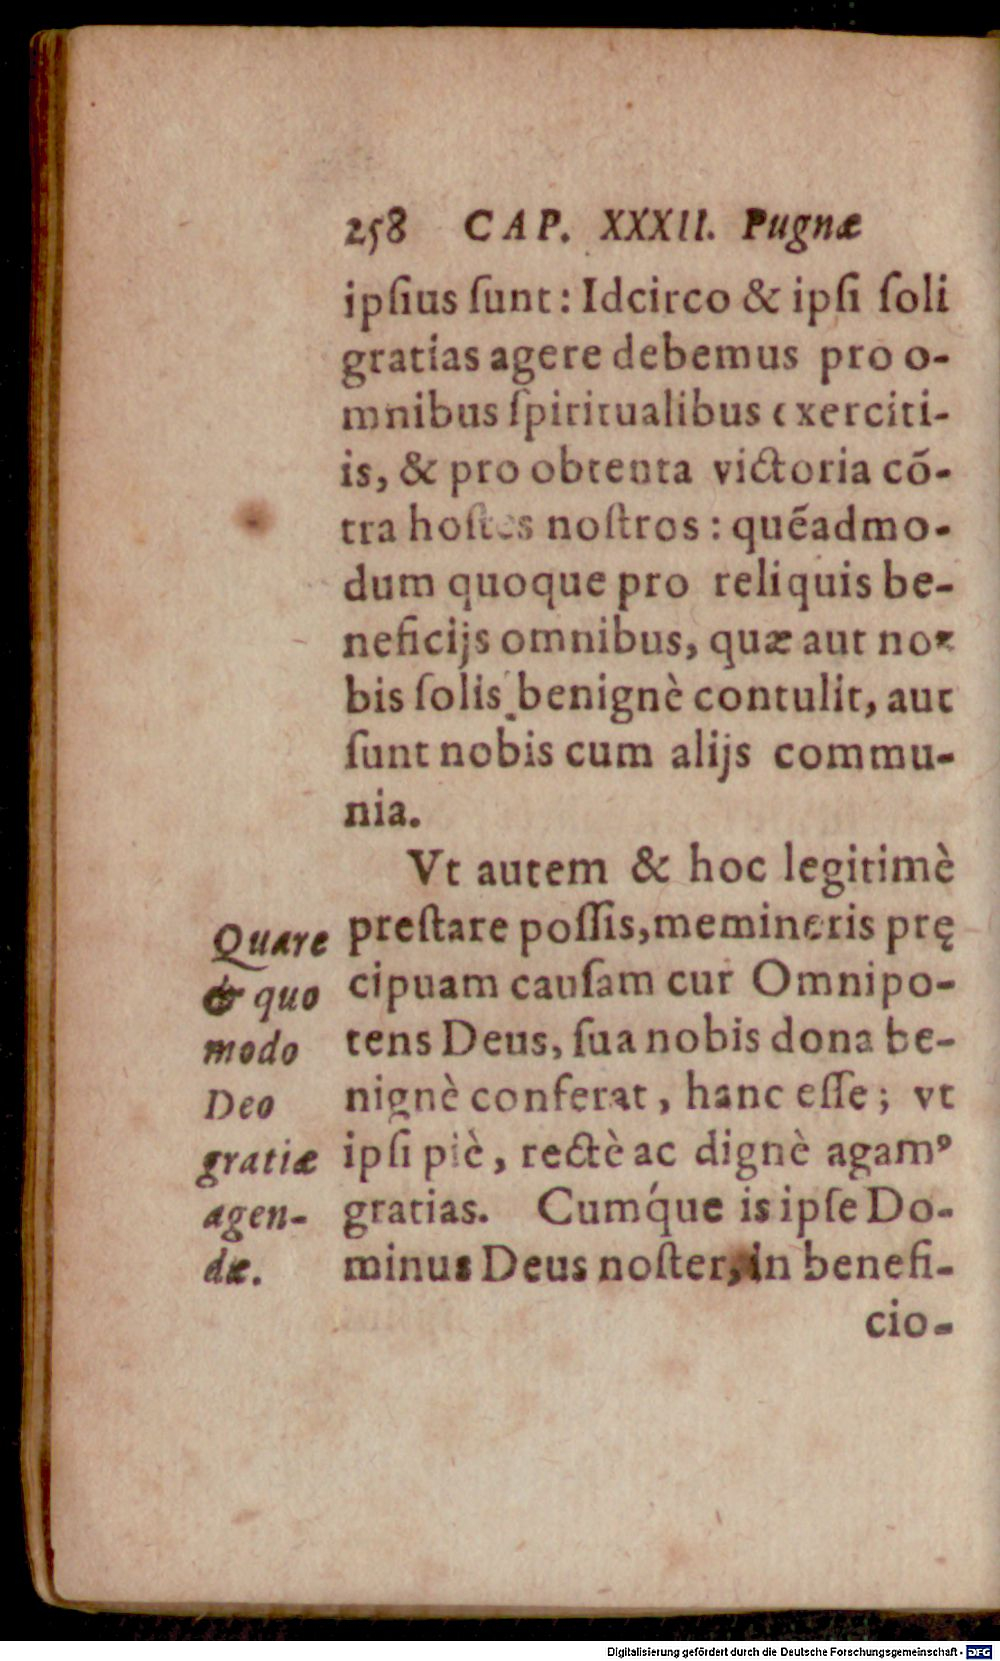 258 CAP. XXXII. Pugnæ
ipſius ſunt: Idcirco & ipſi ſoli
gratias agere debemus pro o-
mnibus ſpiritualibus exerciti-
is, & pro obtenta victoria cõ-
tra hoſtes noſtros: quẽadmo-
dum quoque pro reliquis be-
neficijs omnibus, quæ aut no-
bis ſolis benignè contulit, aut
ſunt nobis cum alijs commu-
nia.
Vt autem & hoc legitimè
preſtare poſſis, memineris prę
cipuam cauſam cur Omnipo-
tens Deus, ſua nobis dona be-
nignè conferat, hanc eſſe; vt
ipſi piè, rectè ac dignè agamꝰ
gratias. Cumq́ue is ipſe Do-
minus Deus noſter, in benefi-
cio-
Quare
& quo
modo
Deo
gratiæ
agen-
dæ.
Digitalisierung gefördert durch die Deutsche Forschungsgemeinschaft - DFG